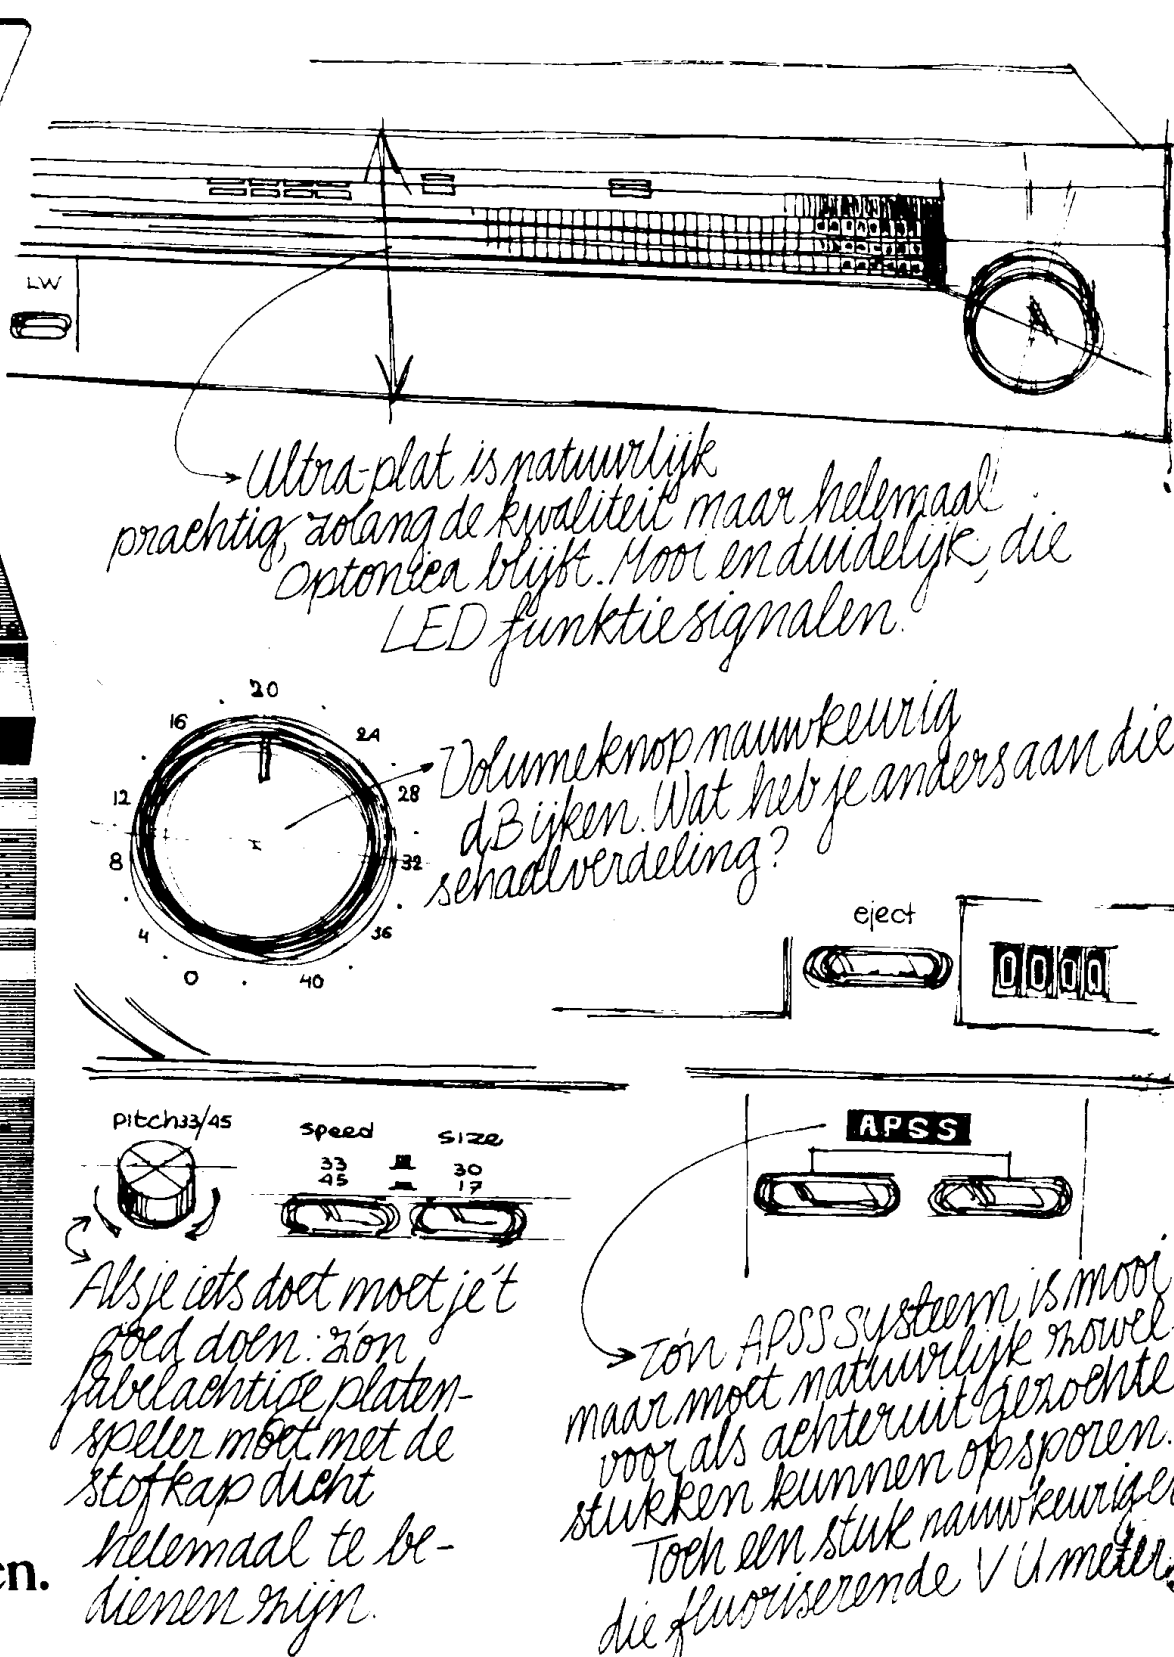 LW
Ultra-plat is natuurlijk
prachtig, zolang de kwaliteit maar helemaal
Optonica blijft. Mooi en duidelijk, die
LED funktiesignalen.
20
16
24
12
28
8
32
4
36
0
40
Volumeknop nauwkeurig
dBijken. Wat heb je anders aan die
schaalverdeling?
eject
0000
pitch 33/45
speed
size
33
30
45
17
APSS
Als je iets doet moet je 't
goed doen: zo'n
fabelachtige platen-
speler moet met de
stofkap dicht
helemaal te be-
dienen zijn.
Zo'n APSS systeem is mooi
maar moet natuurlijk zowel
voor als achteruit gezochte
stukken kunnen opsporen.
Toch een stuk nauwkeuriger
die fluoriserende VU meter.
en.